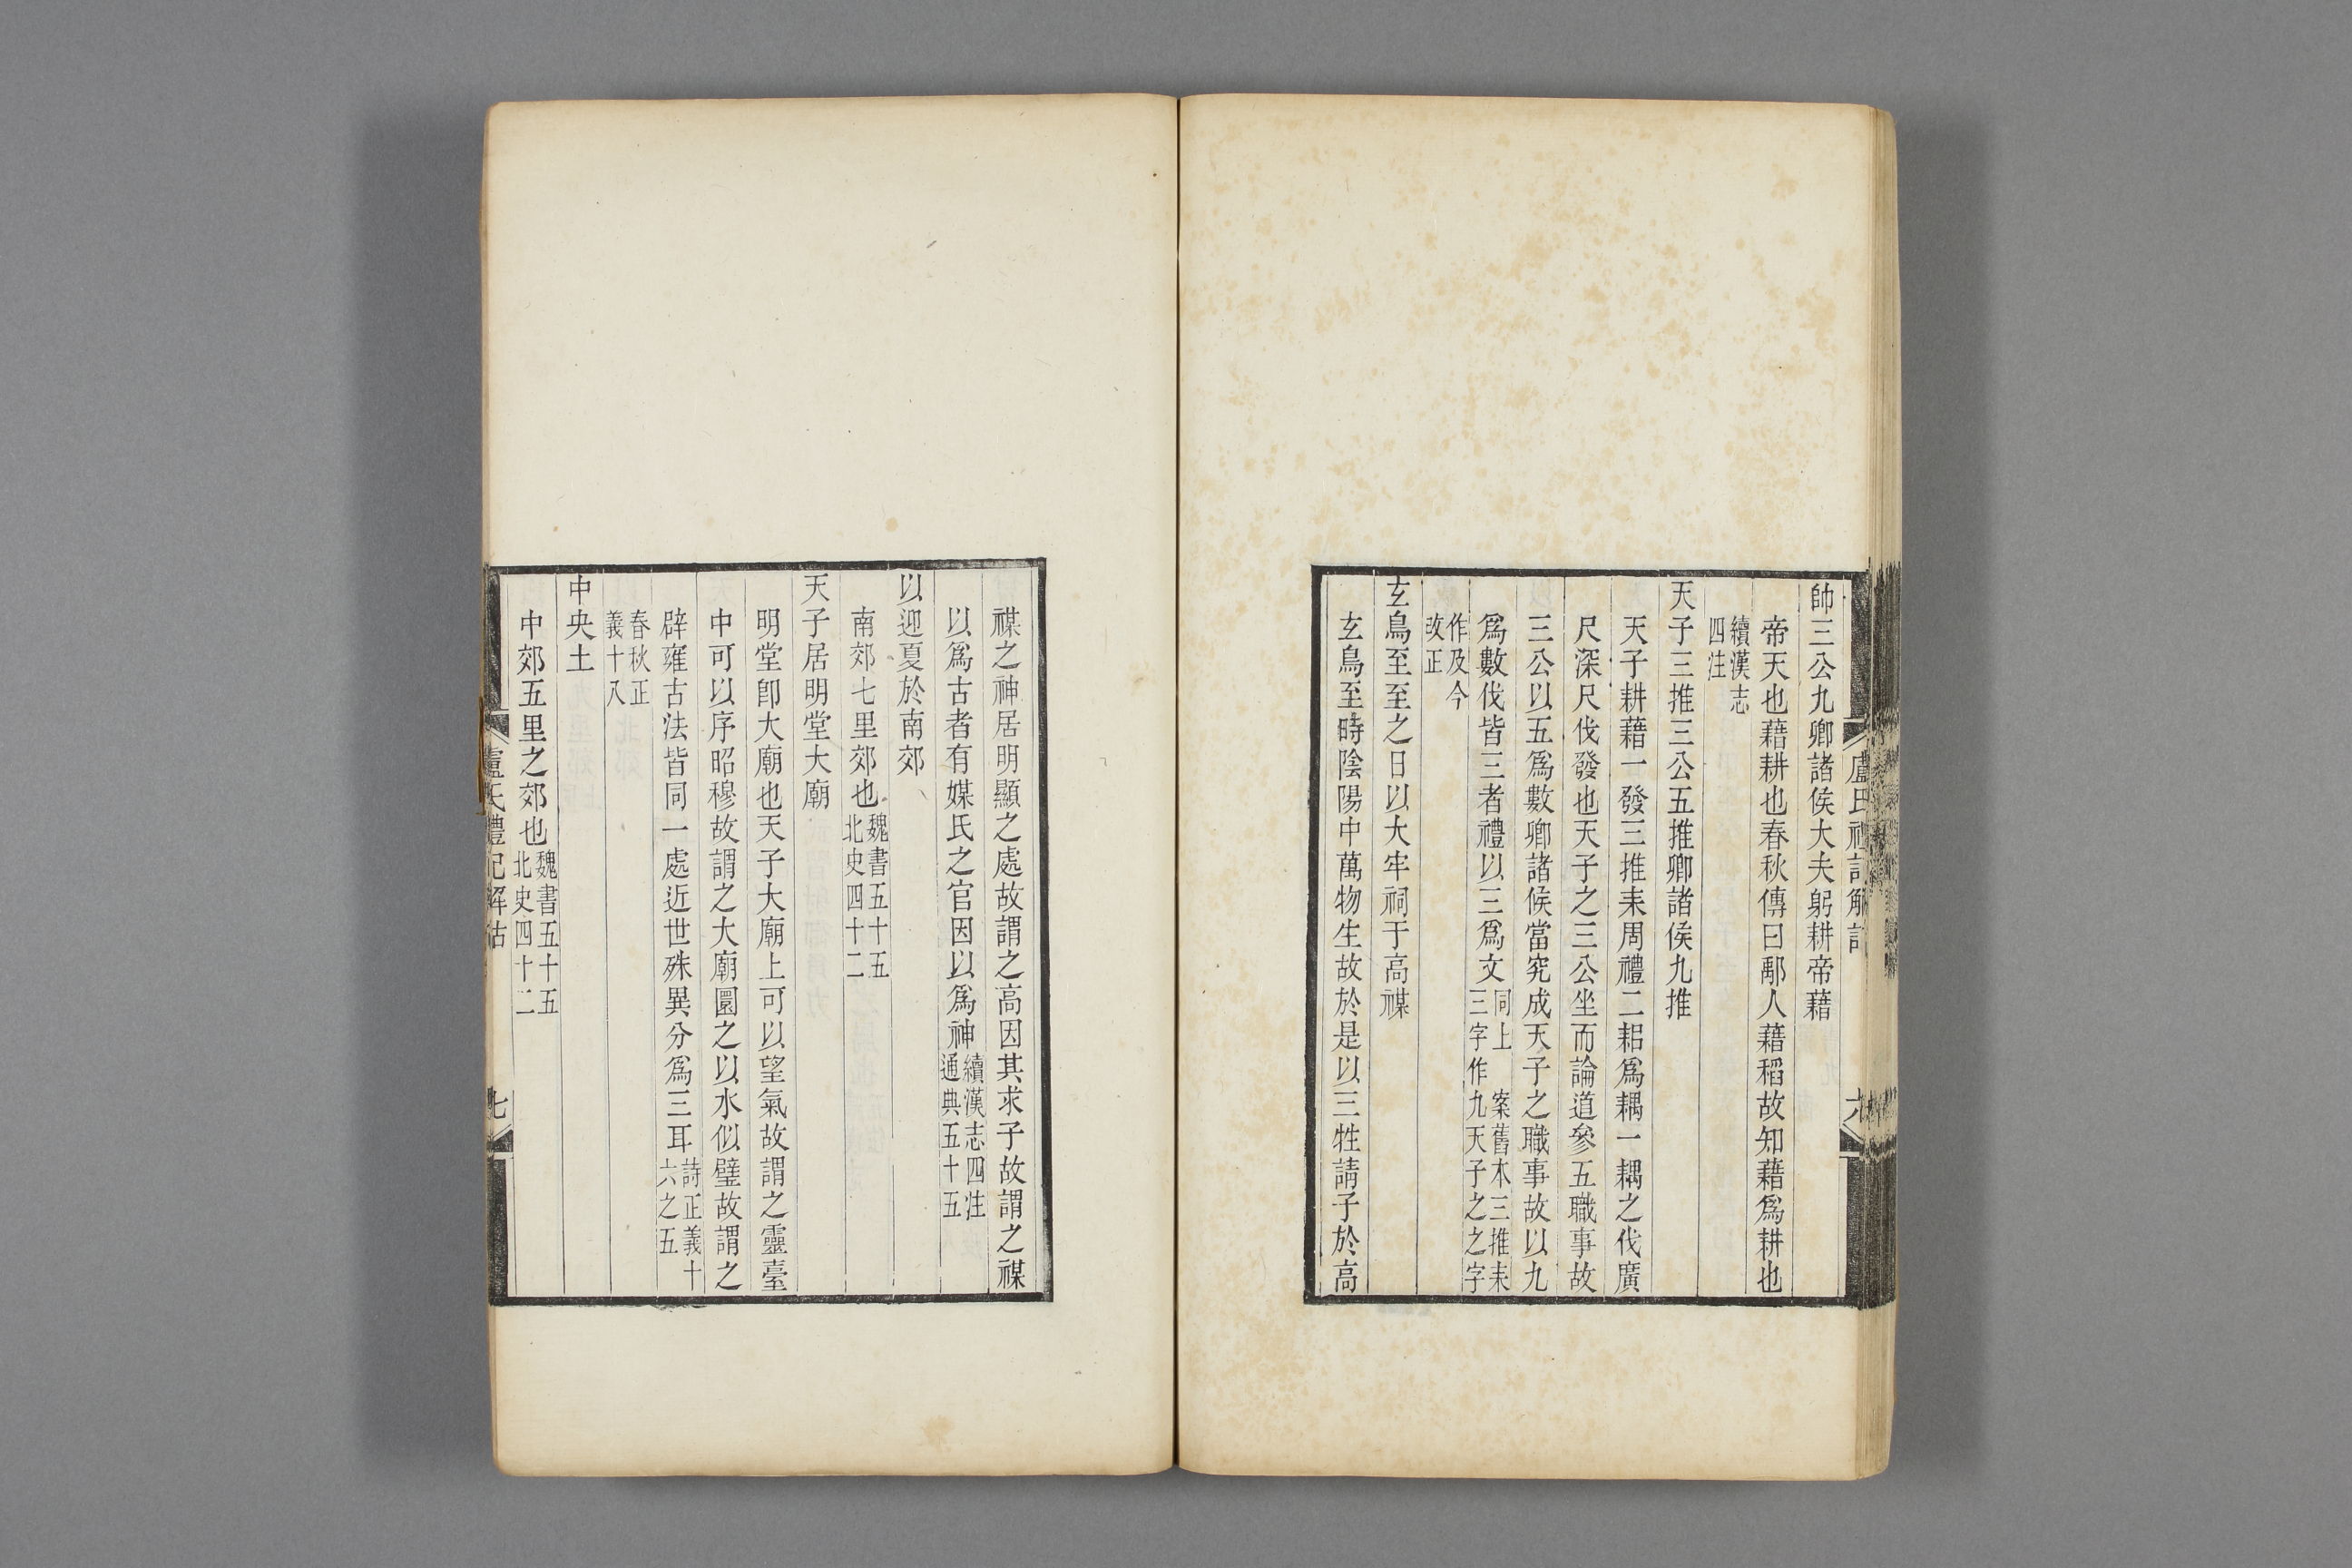 盧氏禮記解詁
六
帥三公九卿諸侯大夫躬耕帝藉
帝天也藉耕也春秋傳曰鄅人藉稻故知藉爲耕也
續漢志
四注
天子三推三公五推卿諸侯九推
天子耕藉一發三推耒周禮二耜爲耦一耦之伐廣
尺深尺伐發也天子之三公坐而論道參五職事故
三公以五爲數卿諸侯當究成天子之職事故以九
爲數伐皆三者禮以三爲文同上 案舊本三推耒
三字作九天子之之字
作及今
改正
玄鳥至至之日以大牢祠于高禖
玄鳥至時陰陽中萬物生故於是以三牲請子於高
禖之神居明顯之處故謂之高因其求子故謂之禖
以爲古者有媒氏之官因以爲神續漢志四注
通典五十五
以迎夏於南郊
南郊七里郊也魏書五十五
北史四十二
天子居明堂大廟
明堂卽大廟也天子大廟上可以望氣故謂之靈臺
中可以序昭穆故謂之大廟圜之以水似璧故謂之
辟雍古法皆同一處近世殊異分爲三耳詩正義十
六之五
春秋正
義十八
中央土
中郊五里之郊也魏書五十五
北史四十二
盧氏禮記解詁
七